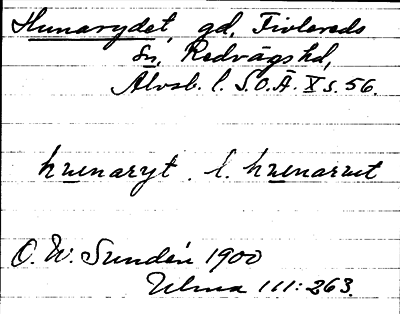 Hunarydet, gd, Tivlereds
Sn, Redvägs hd,
Älvsb. l. S.O.Ä. X s. 56.
hu̲enaryt. l. hu̲enarut
O. W. Sundén 1900
Ulma 111:263.